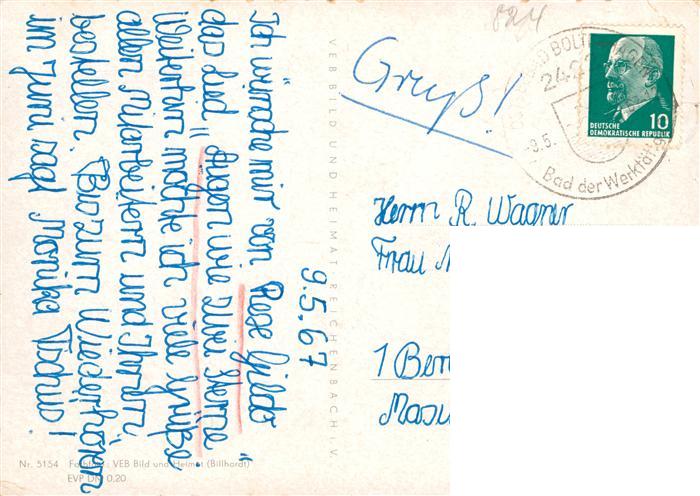 Ich wünsche mir von Rose Gilda
das Lied „Augen wie zwei Sterne"
Weiterhin möchte ich viele Grüße
allen Mitarbeitern und Ihnen
bestellen. Bis zum Wiederhören
im Juni sagt Monika
9.5.67
VEB BILD UND HEIMAT REICHENBACH i. V.
Nr. 5154 VEB Bild und Heimat (Billhardt)
EVP DM 0,20
824
Gruß!
BOLT
242
9.5.
Bad der Werktät
10
DEUTSCHE
DEMOKRATISCHE REPUBLIK
Herrn R. Wagner
Frau
1 Ber
Masu